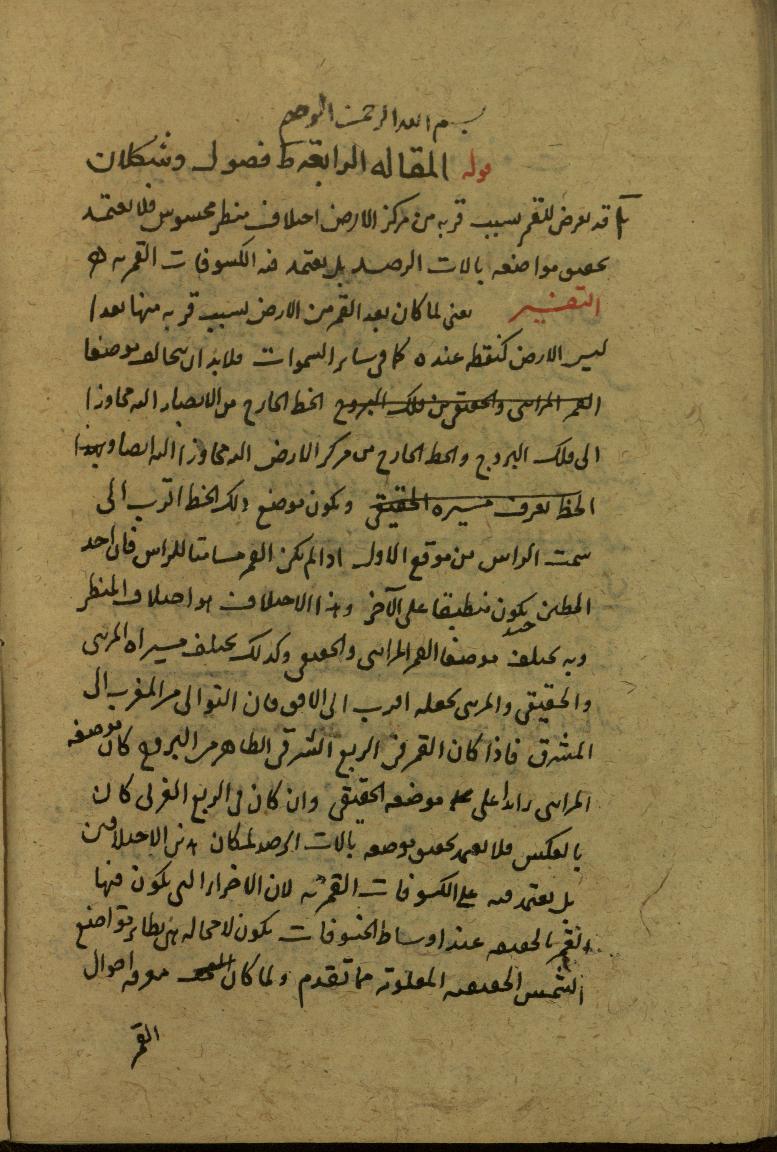 بسم الله الرحمن الرحيم
قوله المقاله الرابعه ط فصول وشكلان
آ قد يعرض للقمر بسبب قربه من مركز الارض اختلاف منظر محسوس فلا يعتمد
تحقيق مواضعه بالات الرصد بل يعتمد فيه الكسوفات القمريه
التفسير يعنى لما كان بعد القمر من الارض بسبب قربه منها بعدا
ليس الارض كنقطه عنده كما فى سائر السموات فلا بد ان يتخالف موضعا
القمر المرائى والحقيقى من فلك البروج الخط الخارج من الابصار اليه مجاوزا
الى فلك البروج والخط الخارج من مركز الارض اليه مجاوزا اليه ايضا وبهذا
الخط يعرف مسيره الحقيقى ويكون موضع ذلك الخط اقرب الى
سمت الراس من موقع الاول اذا لم يكن القمر مسامتا للراس فان احد
الخطين يكون حينئذ منطبقا على الآخر وهذا الاختلاف هو اختلاف المنظر
وبه يختلف موضعا القمر المرائى والحقيقى وكذلك يختلف مسيراه المرئى
والحقيقى والمرئى يجعله اقرب الى الافق فان التوالى من المغرب الى
المشرق فاذا كان القمر فى الربع الشرقى الظاهر من البروج كان موضعه
المرائى زائدا على موضعه الحقيقى وان كان فى الربع الغربى كان
بالعكس فلا يعتمد تحقيق موضعه بالات الرصد لمكان هذين الاختلافين
بل يعتمد فيه على الكسوفات القمريه لان الاجزاء التى يكون فيها
القمر بالحقيقه عند اوساط الخسوفات يكون لا محاله هى نظائر مواضع
الشمس الحقيقيه المعلومه مما تقدم ولما كان معرفه احوال
القمر